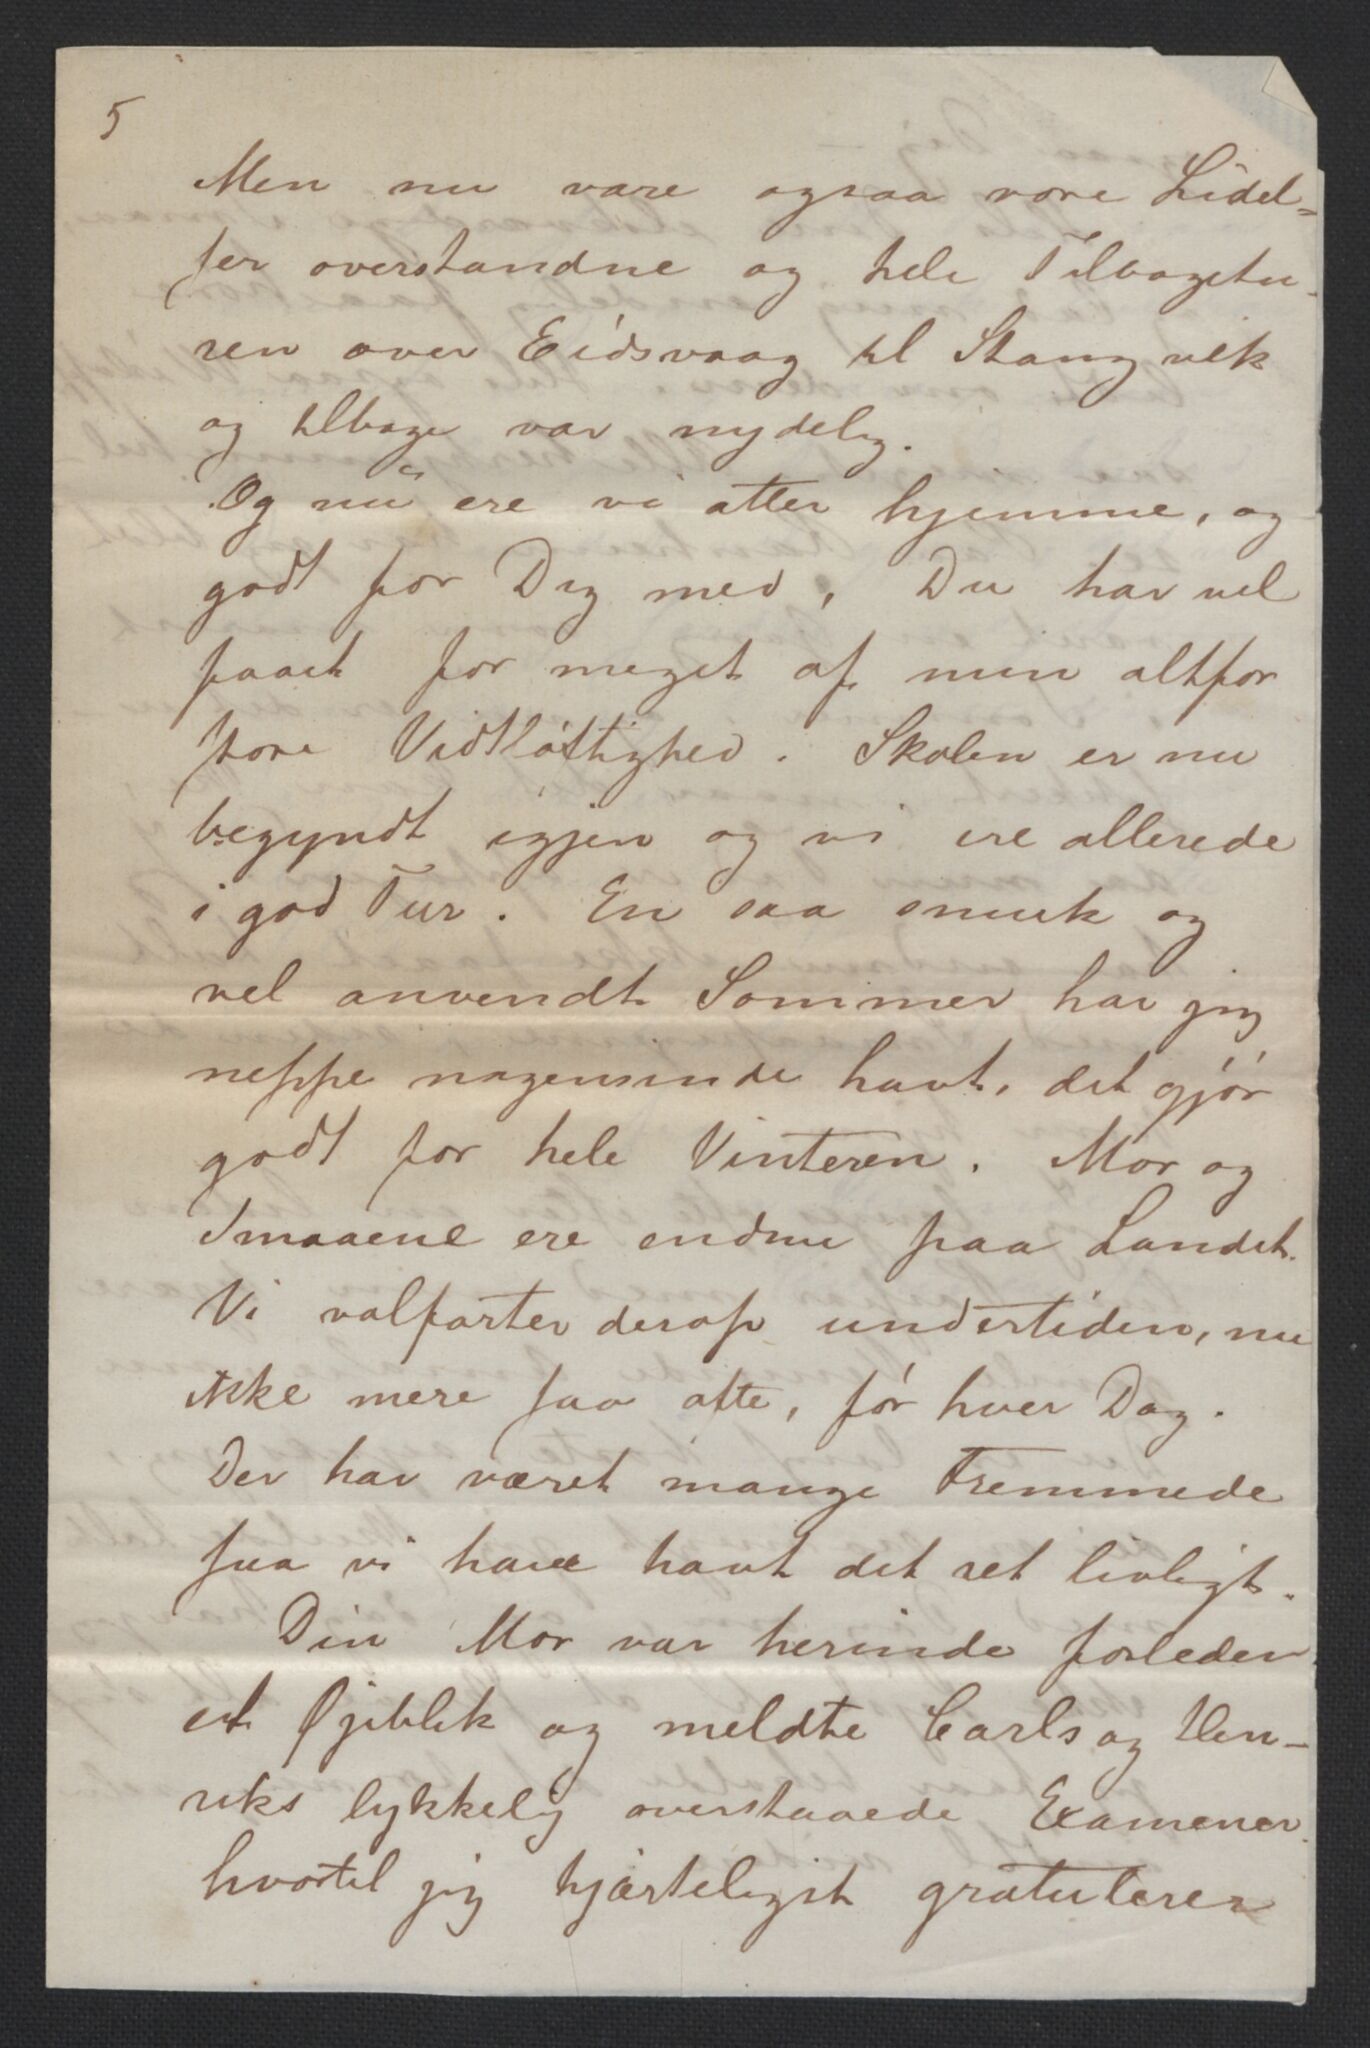 5
Men nu vare ogsaa vore Lidel=
ser overstandne og hele Tilbagetu-
ren over Eidsvaag til Stangvik
og tilbage var nydelig.
Og nu ere vi atter hjemme, og
godt for Dig med, Du har vel
faaet for meget af min altfor
store Vidtløftighed. Skolen er nu
begyndt igjen og vi ere allerede
i god Tur. En saa smuk og
vel anvendt Sommer har jeg
neppe nogensinde havt, det gjør
godt for hele Vinteren. Mor og
Smaaene ere endnu paa Landet.
Vi valfarter derop undertiden, nu
ikke mere saa ofte, før hver Dag.
Der har været mange Fremmede
saa vi have havt det ret livligt.
Din Mor var herinde forleden
et Øjeblik og meldte Carls og Hen-
riks lykkelig overstaaede Examener
hvortil jeg hjærteligst gratulerer